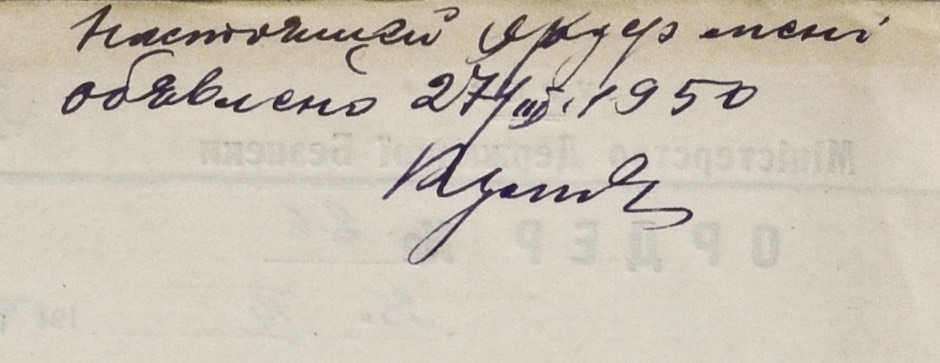 Настоящий ордер мені
обявлено 27/III. 1950
Міністерство Державної Безпеки
ОРДЕР №